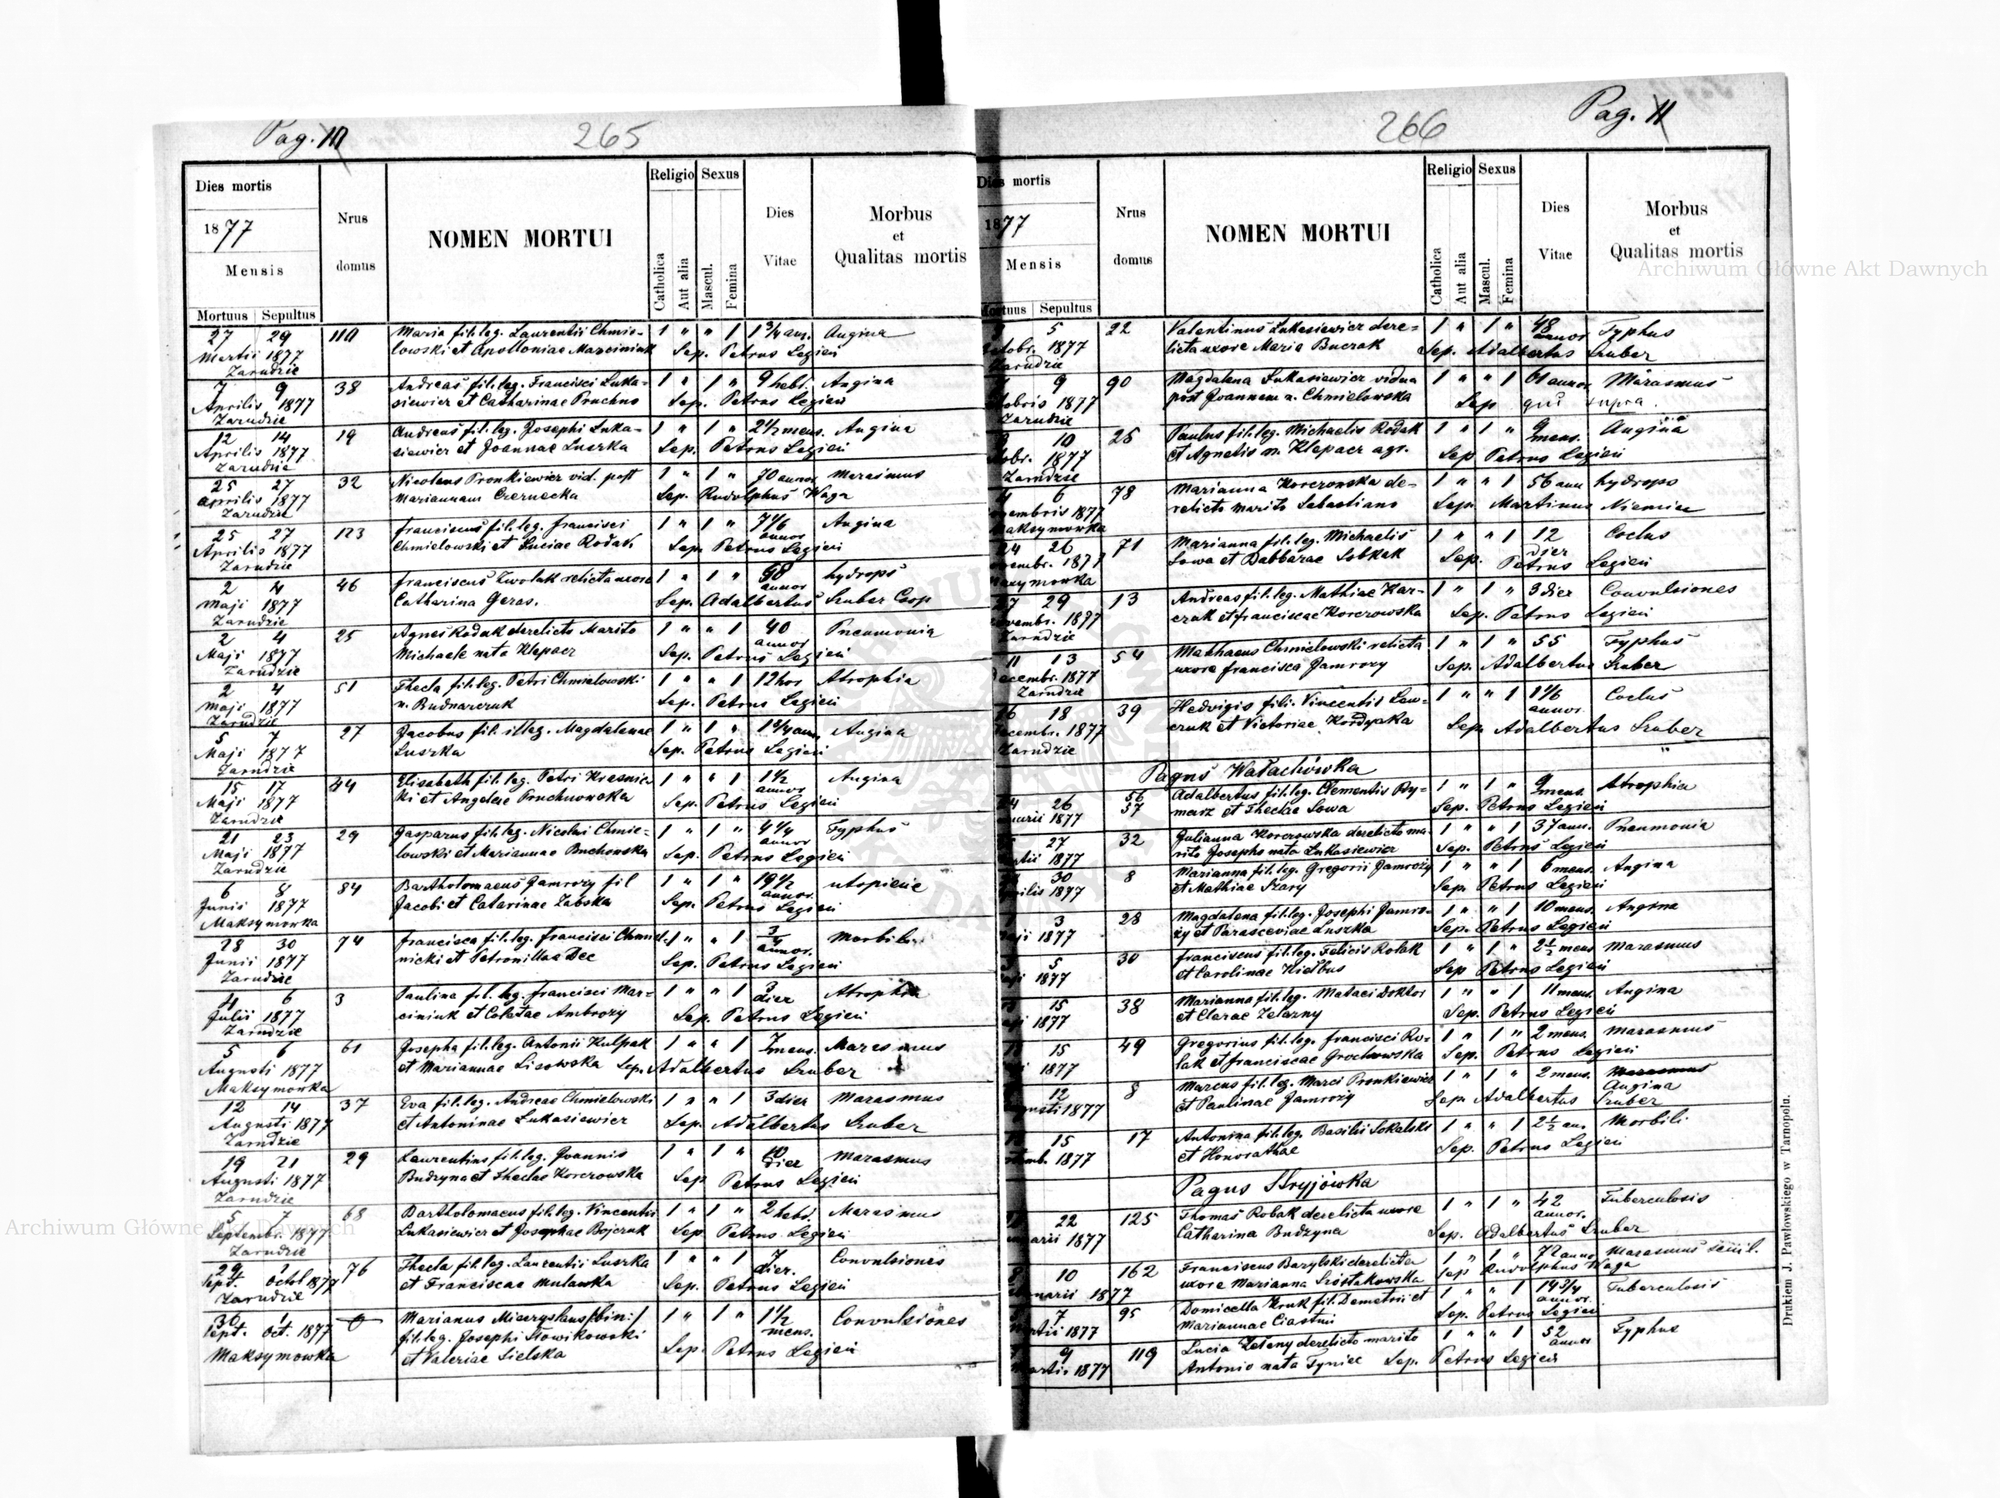 Pag. 10
265
Dies mortis
1877
Mensis
Mortuus Sepultus
Nrus domus
NOMEN MORTUI
Religio
Catholica
Aut alia
Sexus
Mascul.
Femina
Dies Vitae
Morbus
et
Qualitas mortis
27 29 110 Maria fil. leg. Laurentii Chmie- 1 " " 1 1 3/4 ann. Angina
Martii 1877 lowski et Apolloniae Marciniuk Sep. Petrus Legień
Zarudzie
7 9 38 Andreas fil. leg. Francisci Luka- 1 " 1 " 9 hebd. Angina
Aprilis 1877 siewicz et Catharinae Pruchus Sep. Petrus Legień
Zarudzie
12 14 19 Andreas fil. leg. Josephi Luka- 1 " 1 " 2 1/2 mens. Angina
Aprilis 1877 siewicz et Joannae Luszka Sep. Petrus Legień
Zarudzie
25 27 32 Nicolaus Pronkiewicz vid. post 1 " 1 " 70 annor Marasmus
Aprilis 1877 Mariannam Czernecka Sep. Rudolphus Waga
Zarudzie
25 27 123 Franciscus fil. leg. Francisci 1 " 1 " annor Angina
Aprilis 1877 Chmielowski et Luciae Rodak Sep. Petrus Legień
Zarudzie
2 4 46 Franciscus Zwolak relicta uxore 1 " 1 " annor hydrops
Maji 1877 Catharina Geras. Sep. Adalbertus Szuber Coop
Zarudzie
2 4 25 Agnes Rodak derelicto Marito 1 " " 1 40 annor Pneumonia
Maji 1877 Michaele nata Klepacz Sep. Petrus Legień
Zarudzie
2 4 51 Thecla fil. leg. Petri Chmielowski 1 " " 1 12 hor Atrophia
Maji 1877 n. Budnarczuk Sep. Petrus Legień
Zarudzie
5 7 27 Jacobus fil. illeg. Magdalenae 1 " 1 " 1 3/4 ann. Angina
Maji 1877 Luszka Sep. Petrus Legień
Zarudzie
15 17 44 Elisabeth fil. leg. Petri Krasnic 1 " " 1 1 1/2 annor Angina
Maji 1877 ki et Angelae Pruchnowska Sep. Petrus Legień
Zarudzie
21 23 29 Gasparus fil. leg. Nicolai Chmie- 1 " 1 " 4 1/4 annor Typhus
Maji 1877 lowski et Mariannae Buchowska Sep. Petrus Legień
Zarudzie
6 8 84 Bartholomaeus Jamrozy fil 1 " 1 " 19 1/2 annor
Junii 1877 Jacobi et Catarinae Labska Sep. Petrus Legień
Maksymowka
28 30 74 Francisca fil. leg. Francisci Chmiel- 1 " " 1 3/4 annor. Morbili
Junii 1877 nicki et Petronillae Dec Sep. Petrus Legień
Zarudzie
4 6 3 Paulina fil. leg. Francisci Mar- 1 " " 1 3 dier Atrophia
Julii 1877 ciniuk et Coletae Ambrozy Sep. Petrus Legień
Zarudzie
5 6 61 Josepha fil. leg. Antonii Kulpak 1 " " 1 7 mens. Marasmus
Augusti 1877 et Mariannae Lisowska Sep. Adalbertus Szuber
Maksymowka
12 14 37 Eva fil. leg. Andreae Chmielowski 1 " " 1 3 dier Marasmus
Augusti 1877 et Antoninae Lukasiewicz Sep. Adalbertus Szuber
Zarudzie
19 21 29 Laurentius fil. leg. Joannis 1 " 1 " 10 dier Marasmus
Augusti 1877 Budzyna et Theclae Korczowska Sep Petrus Legień
Zarudzie
5 7 68 Bartholomaeus fil. leg. Vincentii 1 " 1 " 2 hebd. Marasmus
Septembr. 1877 Lukasiewicz et Josephae Bojczuk Sep. Petrus Legień
Zarudzie
29 1 76 Thecla fil. leg. Laurentii Luszka 1 " " 1 7 dier. Convulsiones
Sept. Octob 1877 et Franciscae Mulawka Sep. Petrus Legień
Zarudzie
30 1 Marianus Mieczyslaus /bin:/ 1 " 1 " 1 1/2 mens. Convulsiones
Sept. Oct. 1877 fil. leg. Josephi Słowikowski Sep. Petrus Legień
Maksymowka et Valeriae Sielska
Pag. 11
266
Dies mortis
1877
Mensis
Mortuus Sepultus
Nrus domus
NOMEN MORTUI
Religio
Catholica
Aut alia
Sexus
Mascul.
Femina
Dies Vitae
Morbus
et
Qualitas mortis
5 22 Valentinus Lukasiewicz dere- 1 " 1 " 48 annor Typhus
1877 licta uxore Maria Buczak Sep. Adalbertus Szuber
Zarudzie
9 90 Magdalena Lukasiewicz vidua 1 " " 1 61 annor. Marasmus
1877 post Joannem n. Chmielowska Sep qui supra.
Zarudzie
10 25 Paulus fil. leg. Michaelis Rodak 1 " 1 " 9 mens. Angina
1877 et Agnetis n. Klepacz agr. Sep Petrus Legień
Zarudzie
6 78 Marianna Korczowska de- 1 " " 1 56 ann hydrops
1877 relicto marito Sebastiano Sep. Martinus Niemiec
Maksymowka
24 26 71 Marianna fil. leg. Michaelis 1 " " 1 12 dier Coctus
1877 Sowa et Babbarae Sobkak Sep. Petrus Legień
27 29 13 Andreas fil. leg. Mathiae Kar- 1 " 1 " 3 dier Convulsiones
1877 czuk et Franciscae Korczowska Sep. Petrus Legień
Zarudzie
11 13 54 Mathaeus Chmielowski relicta 1 " 1 " 55 Typhus
Decembr. 1877 uxore Francisca Jamrozy Sep. Adalbertus Szuber
Zarudzie
16 18 39 Hedvigis fili. Vincentii Law- 1 " " 1 1 1/6 annor. Coctus
Decembr. 1877 czuk et Victoriae Kordyaka Sep. Adalbertus Szuber
Zarudzie
Pagus Wałachówka
26 56 37 Adalbertus fil. leg. Clementis By- 1 " 1 " 9 mens. Atrophia
1877 marz et Theclae Sowa Sep. Petrus Legień
27 32 Julianna Korczowska derelicto ma- 1 " " 1 37 ann. Pneumonia
1877 rito Josepho nata Lukasiewicz Sep. Petrus Legień
30 8 Marianna fil. leg. Gregorii Jamrozy 1 " " 1 6 mens. Angina
1877 et Mathiae Szary Sep. Petrus Legień
3 28 Magdalena fil. leg. Josephi Jamro- 1 " " 1 10 mens. Angina
1877 zy et Parasceviae Luszka Sep. Petrus Legień
5 30 Franciscus fil. leg. Felicis Rolak 1 " 1 " 2 1/2 mens Marasmus
1877 et Carolinae Kiełbus Sep Petrus Legień
15 38 Marianna fil. leg. Mataei Doktor 1 " " 1 11 mens. Angina
1877 et Clarae Zelazny Sep. Petrus Legień
15 49 Gregorius fil. leg. Francisci Ro- 1 " 1 " 2 mens. Marasmus
1877 lak et Franciscae Grochowska Sep. Petrus Legień
12 8 Marcus fil. leg. Marci Pronkiewicz 1 " 1 " 2 mens. Marasmus Angina
Augusti 1877 et Paulinae Jamrozy Sep Adalbertus Szuber
15 17 Antonina fil. leg. Basilii Sokalski 1 " " 1 2 1/2 ann. Morbili
1877 et Honorathae Sep. Petrus Legień
Pagus Stryjówka
22 125 Thomas Robak derelicta uxore 1 " 1 " 42 annor. Tuberculosis
1877 Catharina Budzyna Sep. Adalbertus Szuber
10 162 Franciscus Barylski derelicta 1 " 1 " 72 anno. Marasmus senil.
1877 uxore Marianna Szostakowska Sep Rudolphus Waga
7 95 Domicella Kruk fil. Demetrii et 1 " " 1 14 3/4 annor. Tuberculosis
1877 Mariannae Ciastoń Sep. Petrus Legień
9 119 Lucia Zeleny derelicto marito 1 " " 1 52 annor Typhus
1877 Antonio nata Tyniec Sep. Petrus Legień
Drukiem J. Pawłowskiego w Tarnopolu.
Archiwum Główne Akt Dawnych
Archiwum Główne Akt Dawnych